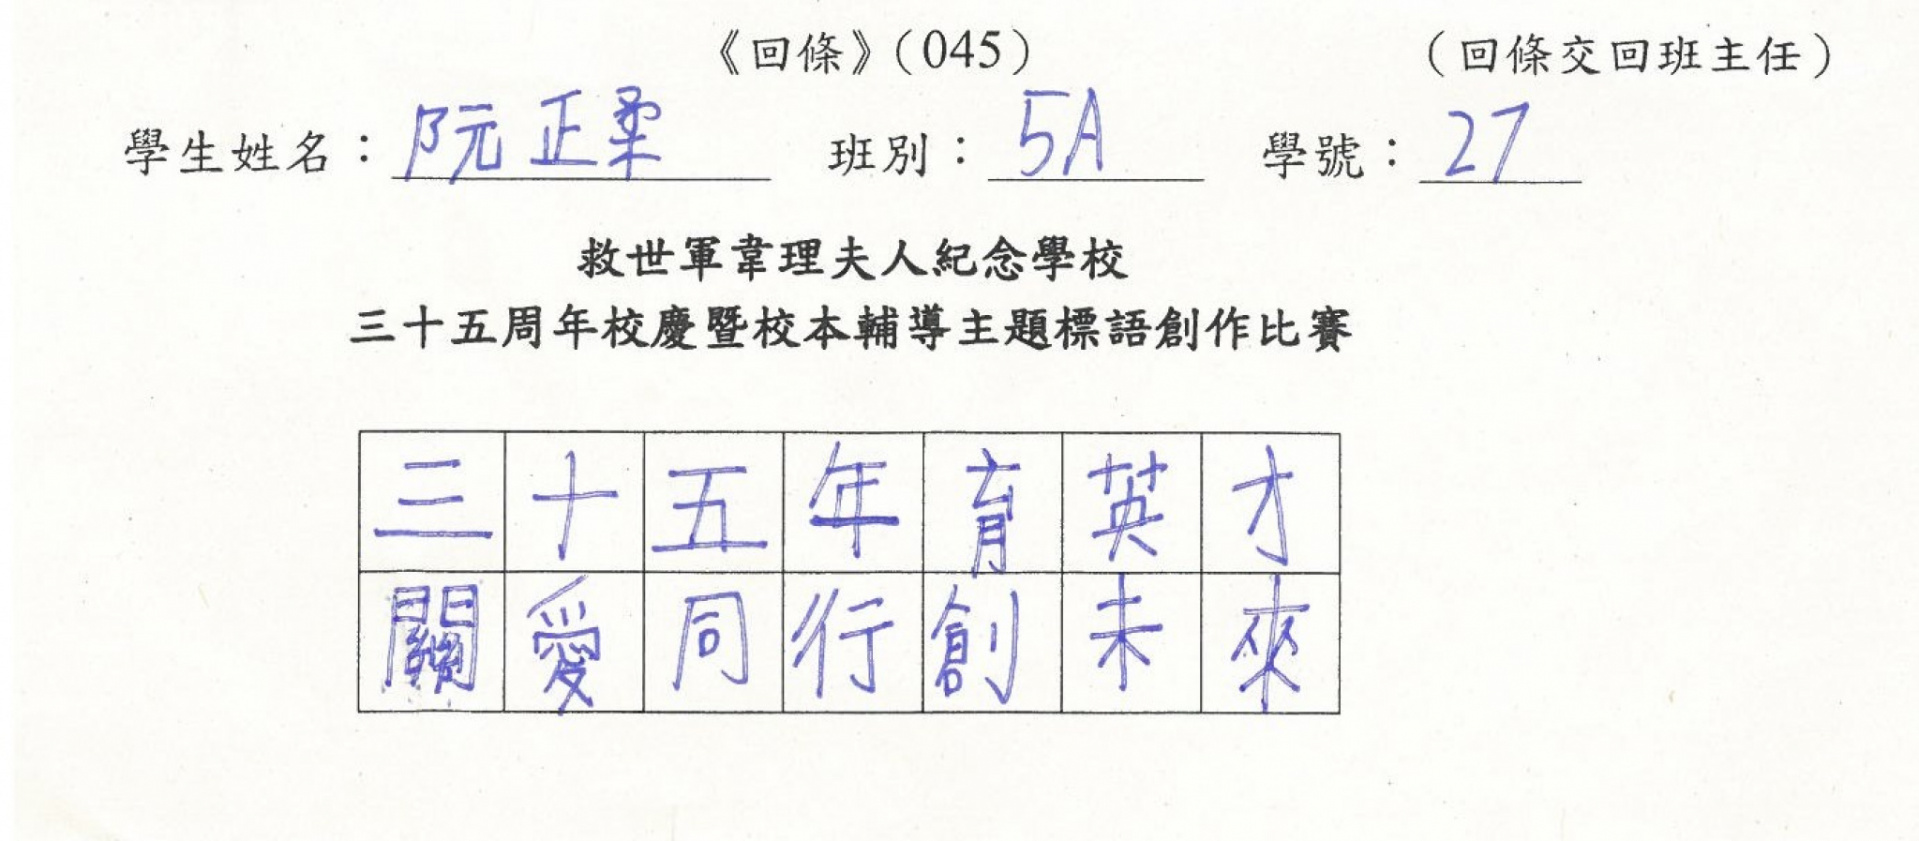 《回條》（045） （回條交回班主任）
學生姓名：阮正柔 班別：5A 學號：27
救世軍韋理夫人紀念學校
三十五周年校慶暨校本輔導主題標語創作比賽
三十五年育英才
關愛同行創未來